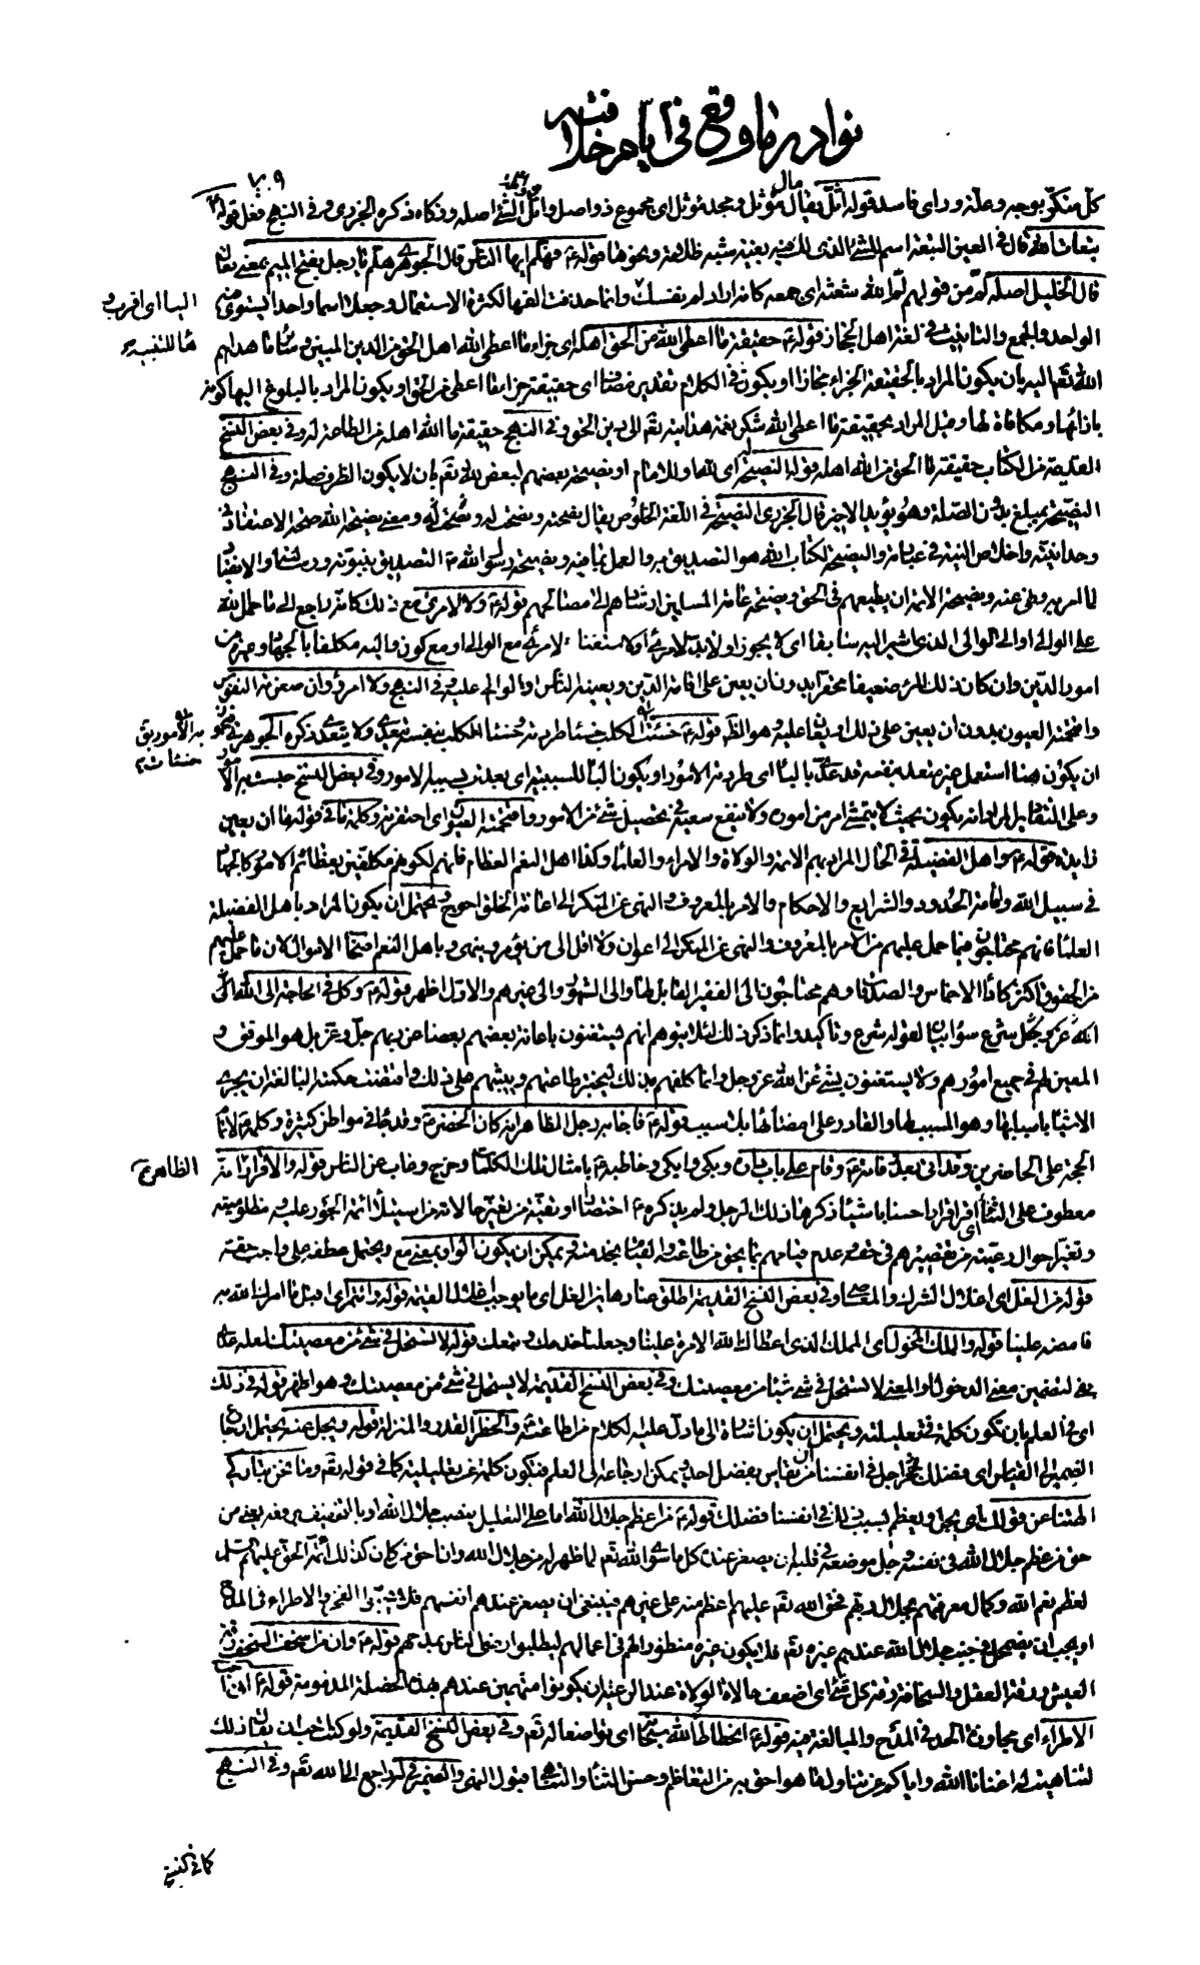 نوادر ما وقع في ايام خلافته
٧٠٩
كل منكر بوجه وعلة وراى فاسد قوله اثل يقال مال مؤثل ومجد مؤثل اى مجموع ذو اصل واثل الشئ اصله وزكاه ذكره الجزرى وفى النهج فعل قوله
بتعات الله قال فى العين التبعة اسم الشئ الذى لك فيه بغية شبه ظلامة ونحوها قوله ع فهلم ايها الناس قال الجوهرى هلم يا رجل بفتح الميم بمعنى تعال
قال الخليل اصله لم من قولهم لم الله شعثه اى جمعه كانه اراد لم نفسك الينا اى اقرب وها للتنبيه وانما حذفت الفها لكثرة الاستعمال وجعلا اسما واحدا يستوى فيه
الواحد والجمع والتانيث فى لغة اهل الحجاز قوله ع حقيقة ما اعطى الله من الحق اهله اى جزاء ما اعطى الله اهل الحق من الدين المبين وساير ما هداهم
الله تعم اليه بان يكون المراد بالحقيقة الجزاء مجازا او يكون فى الكلام تقدير مضاف اى حقيقة جزاء ما اعطى من الحق او يكون المراد بالبلوغ اليها كونه
بازائها ومكافاة لها وقيل المراد بحقيقة ما اعطى الله شكر نعمة هدايته تعم الى دين الحق وفى النهج حقيقة ما الله اهله من الطاعة له وفى بعض النسخ
القديمة من الكتاب حقيقة ما الحق من الله اهله قوله النصيحة له اى لله او للامام او نصيحة بعضهم لبعض لله تعم بان لا يكون الظرف صلة وفى النهج
النصيحة بمبلغ بدون الصلة وهو يؤيد الاخير قال الجزرى النصيحة فى اللغة الخلوص يقال نصحته ونصحت له ومعنى نصيحة الله صحة الاعتقاد فى
وحدانيته واخلاص النية فى عبادته والنصيحة لكتاب الله هو التصديق به والعمل بما فيه ونصيحة رسول الله ص التصديق بنبوته ورسالته والانقياد
لما امر به ونهى عنه ونصيحة الائمة ان يطيعهم فى الحق ونصيحة عامة المسلمين ارشادهم الى مصالحهم قوله ع ولا لامرئ مع ذلك كانه راجع الى ما حمل الله
على الوالى او الى الوالى الذى اشير اليه سابقا اى لا يجوز او لا بد لامرئ او لا استغناء لامرئ مع الوالى او مع كون والية مكلفا بالجهاد وغيره من
امور الدين وان كان ذلك المرء ضعيفا محقرا بدون ان يعين على اقامة الدين ويعينه الناس او الوالى عليه وفى النهج ولا امرؤ وان صغرته النفوس
واقتحمته العيون بدون ان يعين على ذلك او يعان عليه وهو الظ قوله ع خسئت به الامور يق خسئت الكلب خسئا طردته وخسئا الكلب بنفسه يتعدى ولا يتعدى ذكره الجوهرى فيجوز
ان يكون هنا استعمل غير متعد بنفسه قد عدى بالباء اى طردته الامور او يكون الباء للسببية اى بعدت بسببه الامور وفى بعض النسخ حبست به الامور
وعلى التقادير المراد انه يكون بحيث لا يتمشى امر من اموره ولا ينفع سعيه فى تحصيل شئ من الامور واقتحمته العيون اى احتقرته وكلمة ما فى قوله ما ان يعين
زايدة قوله ع واهل الفضيلة فى الحال المراد بهم الائمة والولاة والامراء والعلماء وكذا اهل النعم العظام فانهم لكونهم مكلفين بعظائم الامور كالجهاد
فى سبيل الله واقامة الحدود والشرايع والاحكام والامر بالمعروف والنهى عن المنكر الى اعانة الخلق احوج ويحتمل ان يكون المراد باهل الفضيلة
العلماء فانهم محتاجون فيما حمل عليهم من الامر بالمعروف والنهى عن المنكر الى اعوان ولا اقل الى من يؤمر وينهى وباهل النعم اصحاب الاموال لان ما حمل عليهم
من الحقوق اكثر كاداء الاخماس والصدقات وهم محتاجون الى الفقير القابل لها والى الشهود والى غيرهم والاول اظهر قوله ع وكل فى الحاجة الى الله
الله عز وجل شرع سواء بيان لقوله شرع وتاكيد وانما ذكر ذلك لئلا يتوهم انهم يستغنون باعانة بعضهم بعضا عن ربهم جل وعز بل هو الموفق و
المعين لهم فى جميع امورهم ولا يستغنون بشئ عن الله عز وجل وانما كلفهم بذلك ليختبر طاعتهم ويثيبهم على ذلك واقتضت حكمته البالغة ان يجرى
الاشياء باسبابها وهو المسبب لها والقادر على امضائها بلا سبب قوله ع فاجابه رجل الظاهر انه كان الخضر ع وقد جاء فى مواطن كثيرة وكلمه ع لاتمام
الحجة على الحاضرين وقد اتى بعد وفاته ع وقام على باب داره وبكى وابكى وخاطبه ع بامثال تلك الكلمات وخرج وغاب عن الناس قوله والاقرار الظاهر انه
معطوف على الثناء اى اقر اقرارا حسنا باشياء ذكرها ذلك الرجل ولم يذكره ع اختصارا او تقية من تغير حالاته من استيلاء ائمة الجور عليه ومظلوميته
وتغير احوال رعيته من تقصيرهم فى حقه وعدم قيامهم بما يحق من طاعته والقيام بخدمته ويمكن ان يكون الواو بمعنى مع ويحتمل عطفه على واجب حقه
قوله من الغل اى اغلال الشرك والمعاصى وفى بعض النسخ القديمة اطلق عنا رهاين الغل اى ما يوجب اغلال القيمة قوله وائتمر اى اقبل ما امرك الله به
فامضه علينا قوله والملك المخول اى الملك الذى اعطاك الله الامرة علينا وجعلنا خدمك وتبعك قوله لا نستحل فى شئ من معصيتك لعله عدى
بفى لتضمين معنى الدخول او المعنى لا نستحل فى شئ شيئا من معصيتك وفى بعض النسخ القديمة لا يستحل فى شئ من معصيتك وهو اظهر قوله فى ذلك
اى فى العلم بان تكون كلمة فى تعليلية ويحتمل ان يكون اشارة الى ما دل عليه الكلام من اطاعته والخطر القدر والمنزلة قوله ويجل عنه يحتمل ارجاع
الضمير الى القياس اى فضلك اجل فى انفسنا من ان يقاس بفضل احد ويمكن ارجاعه الى العلم فتكون كلمة عن تعليلية كما فى قوله تعم وما نحن بتاركى
الهتنا عن قولك اى يجل ويعظم بسبب ذلك فى انفسنا فضلك قوله ع من عظم جلال الله اما على التفعيل بنصب جلال الله او بالتخفيف برفعه يعنى من
حق من عظم جلال الله فى نفسه وجل موضعه فى قلبه ان يصغر عنده كل ما سوى الله تعم لما ظهر له من جلال الله وان احق من كان كذلك ائمة الحق عليهم السلم
لعظم نعم الله وكمال معرفتهم بجلال ربهم فحق الله تعم عليهم اعظم منه على غيرهم فينبغى ان يصغر عندهم انفسهم فلا يحبوا الفخر والاطراء فى المدح
او يجب ان يضمحل فى جنب جلال الله عندهم غيره تعم فلا يكون غيره منظورا لهم فى اعمالهم ليطلبوا رضى الناس بمدحهم قوله ع وان من اسخف السخف رقة
العيش ورقة العقل والسخافة رقة كل شئ اى اضعف حالات الولاة عند الرعية ان يكونوا متهمين عندهم بهذه الخصلة المذمومة قوله ع انى احب
الاطراء اى مجاوزة الحد فى المدح والمبالغة فيه قوله ع انحطاطا لله سبحانه اى تواضعا له تعم وفى بعض النسخ القديمة ولو كنت احب ان يقال ذلك
لتناهيت له اغنانا الله واياكم عن تناول ما هو احق به من التعاظم وحسن الثناء والتناهى قبول النهى والضمير فى له راجع الى الله تعم وفى النهج
كما فى النسخ